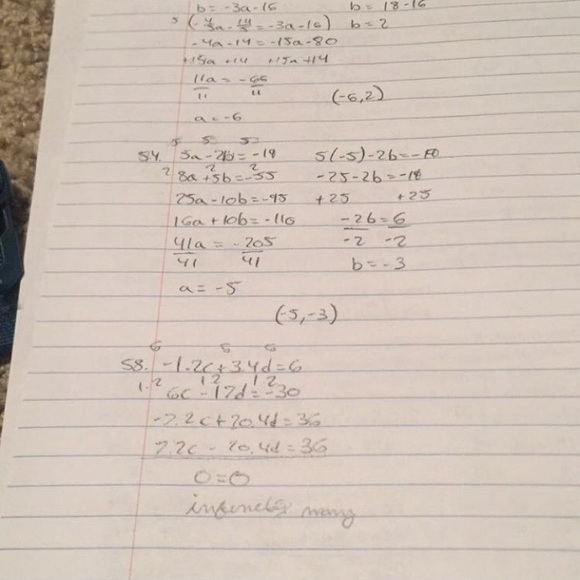 b = -3a - 16 b = 18 - 16
5 (-4/5a - 14/5 = -3a - 16) b = 2
-4a - 14 = -15a - 80
+15a +14 +15a +14
11a = -66
11 11 (-6, 2)
a = -6
5 5 5
54. 5a - 2b = -19 5(-5) - 2b = -19
2 8a + 5b = -55 -25 - 2b = -19
2 2
25a - 10b = -95 +25 +25
16a + 10b = -110 -2b = 6
41a = -205 -2 -2
41 41 b = -3
a = -5
(-5, -3)
6 6 6
58. -1.2c + 3.4d = 6
1.2 6c - 17d = -30
1.2 1.2
-7.2c + 20.4d = 36
7.2c - 20.4d = 36
0 = 0
many